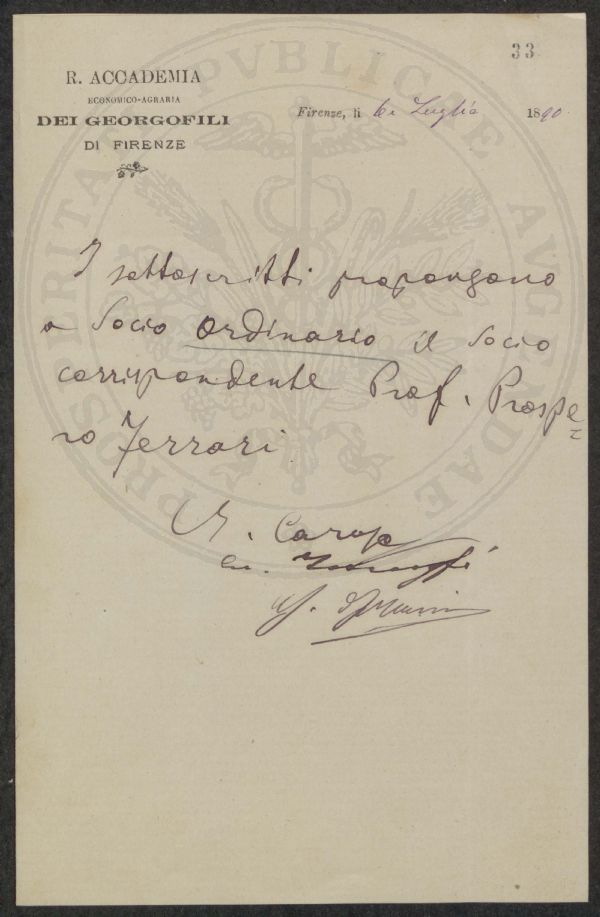 33
R. ACCADEMIA
ECONOMICO-AGRARIA
DEI GEORGOFILI
DI FIRENZE
Firenze, li 6 Luglio 1890
PROSPERITATI PVBLICAE AVGENDAE
I sottoscritti propongono
a Socio ordinario il Socio
corrispondente Prof. Prospe=
ro Ferrari
Caruso